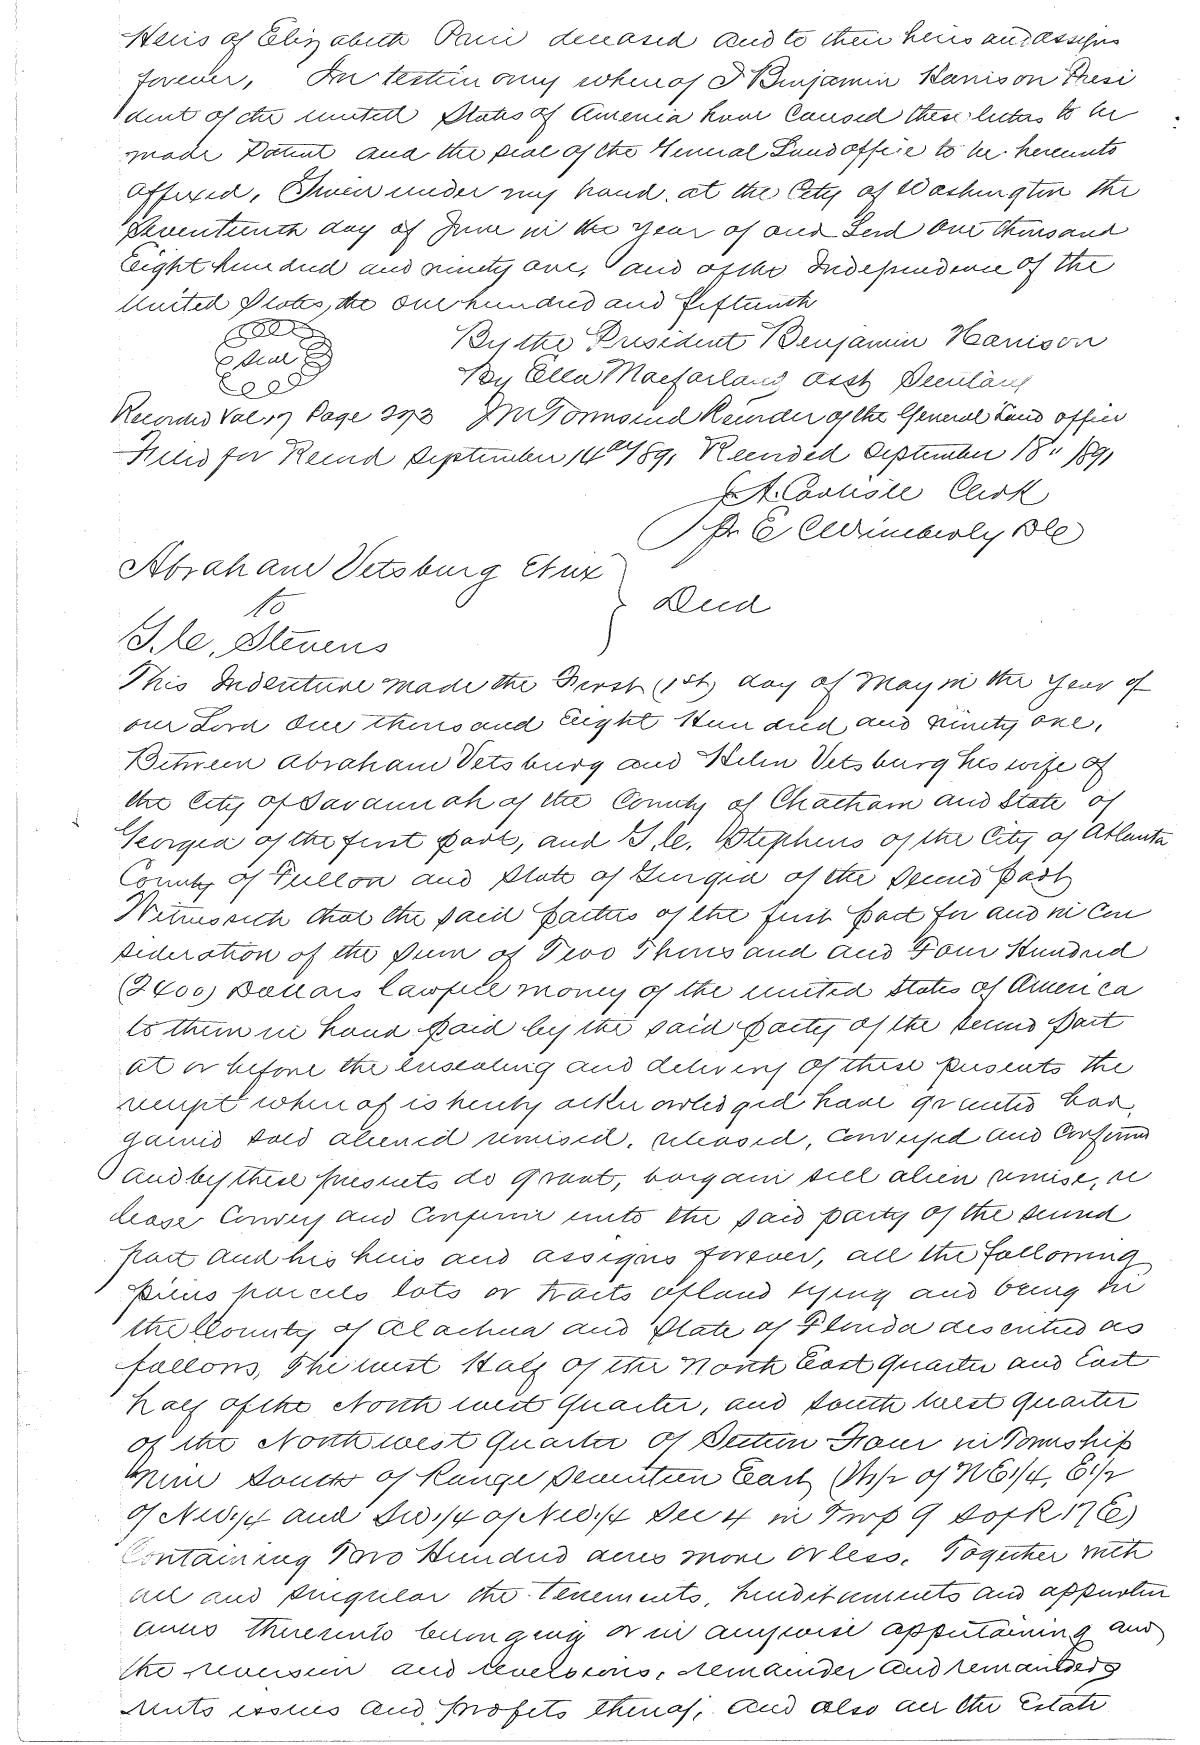 Heirs of Elizabeth deceased and to their heirs and assigns
forever, In testimony whereof I Benjamin Harrison Presi
dent of the united States of America have caused these letters to be
made Patent and the seal of the General Land office to be hereunto
affixed, Given under my hand at the City of Washington the
Seventeenth day of June in the year of our Lord one thousand
Eight hundred and ninety one, and of the Independence of the
United States, the one hundred and fifteenth
Seal
By the President Benjamin Harrison
By Ella Macfarland asst Secretary
Recorded Vol 17 Page 293 JM Townsend Recorder of the General Land office
Filed for Record September 14th 1891 Recorded September 18" 1891
J A. Carlisle Clerk
Pr E C Wimberly DC
Abraham Vetsburg Et ux
to
J. C. Stevens
Deed
This Indenture made the First (1st) day of May in the year of
our Lord One thousand Eight Hundred and ninety one,
Between Abraham Vetsburg and Helen Vetsburg his wife of
the City of Savannah of the County of Chatham and State of
Georgia of the first part, and J. C. Stephens of the City of Atlanta
County of Fulton and State of Georgia of the second part
Witnesseth that the said parties of the first part for and in Con
sideration of the sum of Two Thousand and Four Hundred
(2400) Dollars lawful money of the united States of America
to them in hand paid by the said party of the second part
at or before the ensealing and delivery of these presents the
receipt whereof is hereby acknowledged have granted bar
gained sold aliened remised, released, conveyed and confirmed
and by these presents do grant, bargain sell alien remise, re
lease Convey and Confirm unto the said party of the second
part and his heirs and assigns forever, all the following
pieces parcels lots or tracts of land lying and being in
the County of Alachua and State of Florida described as
follows, The west Half of the North East quarter and East
half of the North west Quarter, and South West Quarter
of the North west Quarter of Section Four in Township
Nine South of Range Seventeen East (W1/2 of NE1/4, E1/2
of NW1/4 and SW1/4 of NW1/4 Sec 4 in Twp 9 S of R 17 E)
Containing Two Hundred acres more or less. Together with
all and singular the tenements, hereditaments and appurten
ances thereunto belonging or in anywise appertaining and
the reversion and reversions, remainder and remainders
rents issues and profits thereof, and also all the Estate